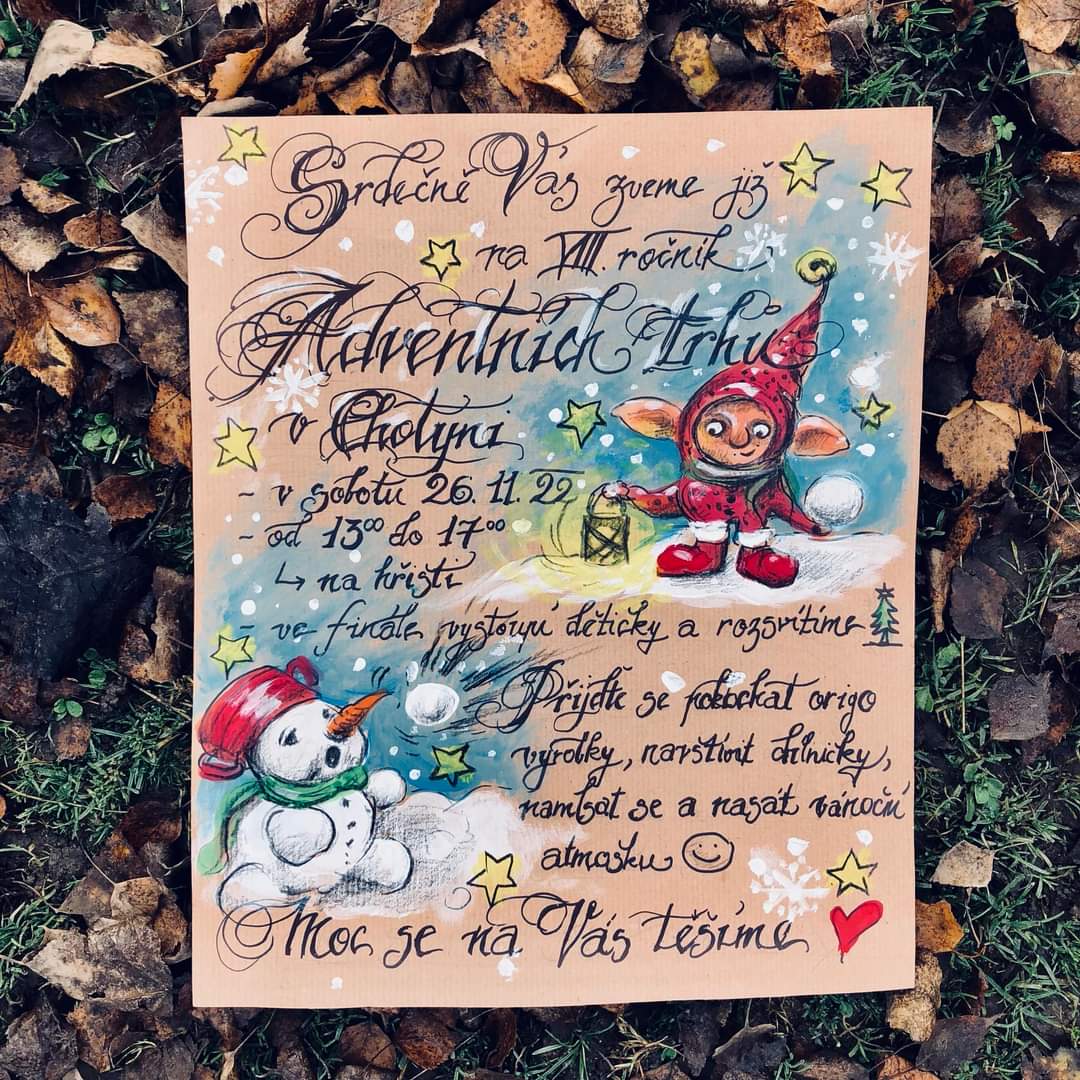 Srdečně Vás zveme již
na VIII. ročník
Adventních trhů
v Chotyni
- v sobotu 26. 11. 22
- od 13⁰⁰ do 17⁰⁰
↳ na hřišti
- ve finále vystoupí dětičky a rozsvítíme
Přijďte se pokochat origo
výrobky, navštívit dílničky,
namlsat se a nasát vánoční
atmosku ☺
Moc se na Vás těšíme